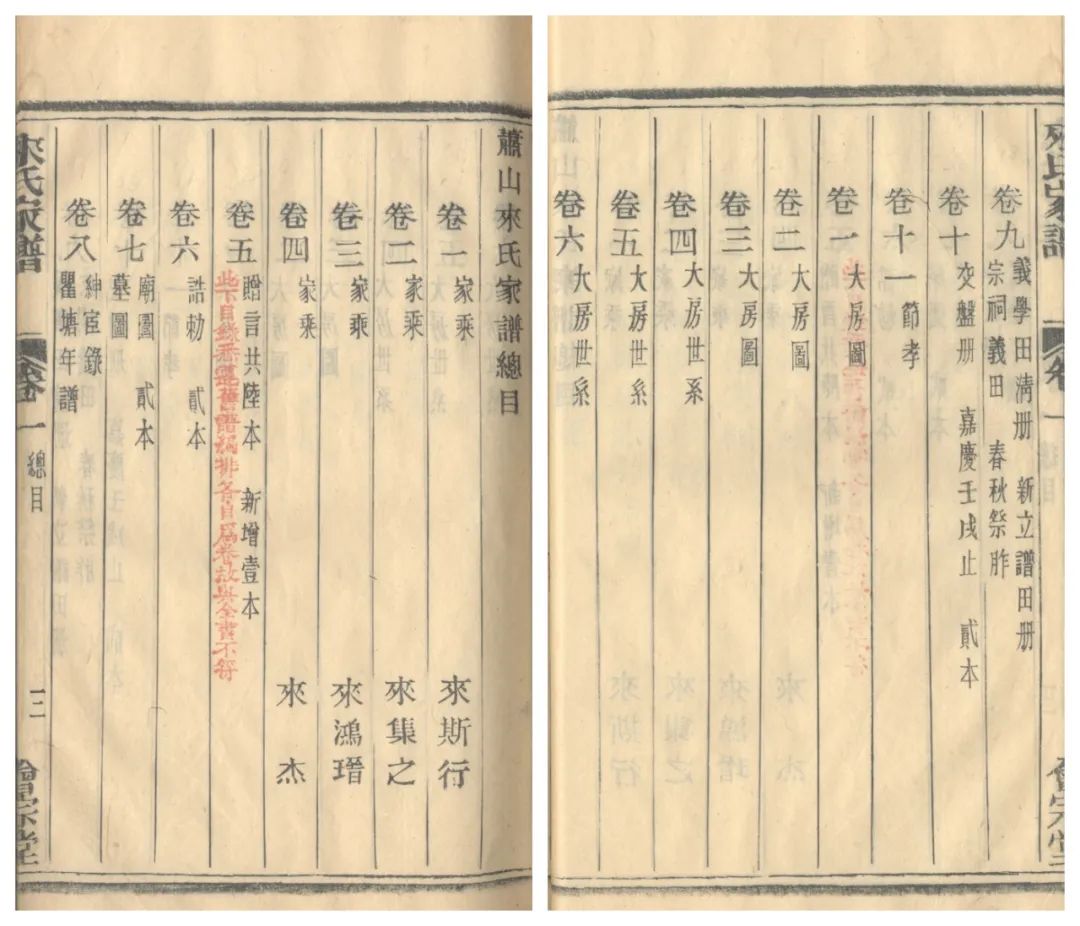 蕭山來氏家譜總目
卷一 家乘 來斯行
卷二 家乘 來集之
卷三 家乘 來鴻瑨
卷四 家乘 來杰
卷五 贈言共陸本 新增壹本
些下目錄悉遵舊譜編排各自爲卷故與全書不符
卷六 誥勅 貳本
卷七 廟圖 墓圖 貳本
卷八 紳宦錄 瞿塘年譜
來氏家譜 卷一 總目 三 會宗堂
來氏家譜 卷一 會宗堂
卷九 義學田淸册 新立譜田册
宗祠義田 春秋祭胙
卷十 交盤册 嘉慶壬戌止 貳本
卷十一 節孝
卷一 大房圖
卷二 大房圖
卷三 大房圖
卷四 大房世系
卷五 大房世系
卷六 大房世系